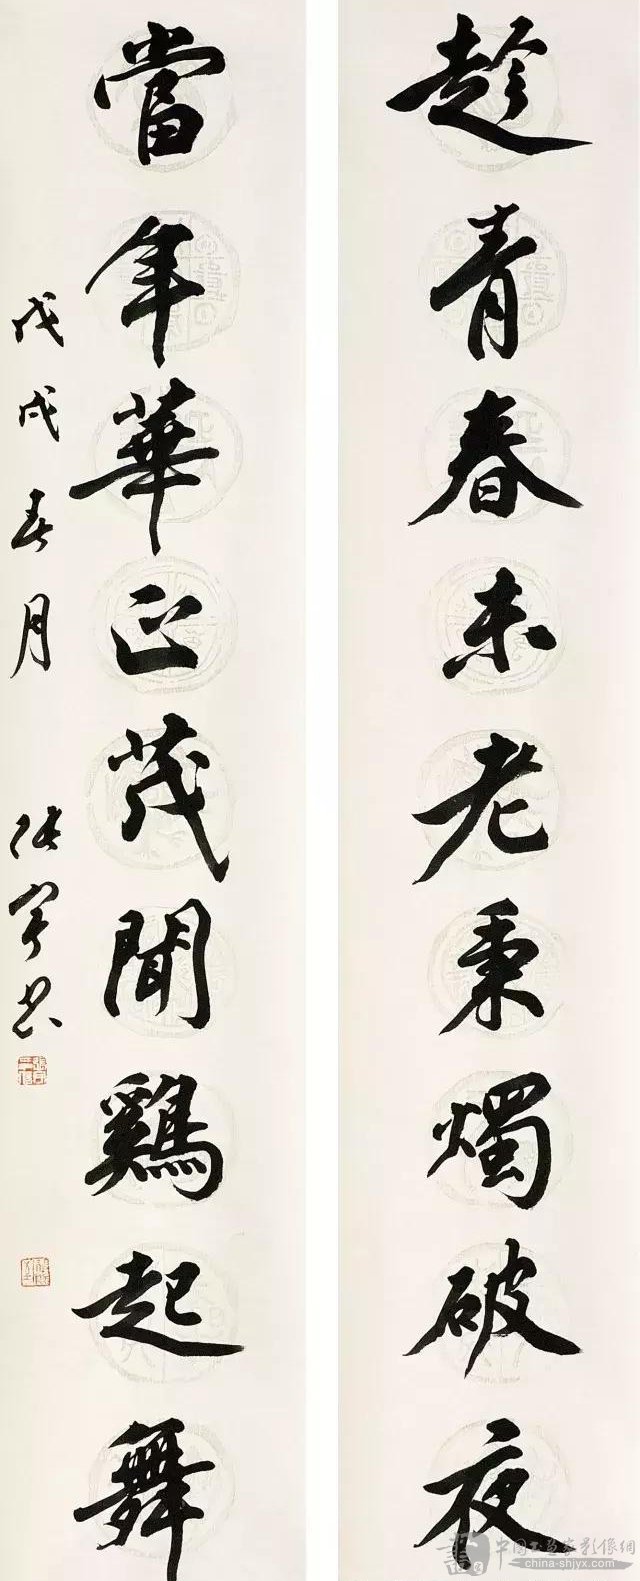 趁青春未老秉燭破夜
當年華正茂聞鷄起舞
戊戌春月 張寧書
中国书画家影像網
china-shjyx.com